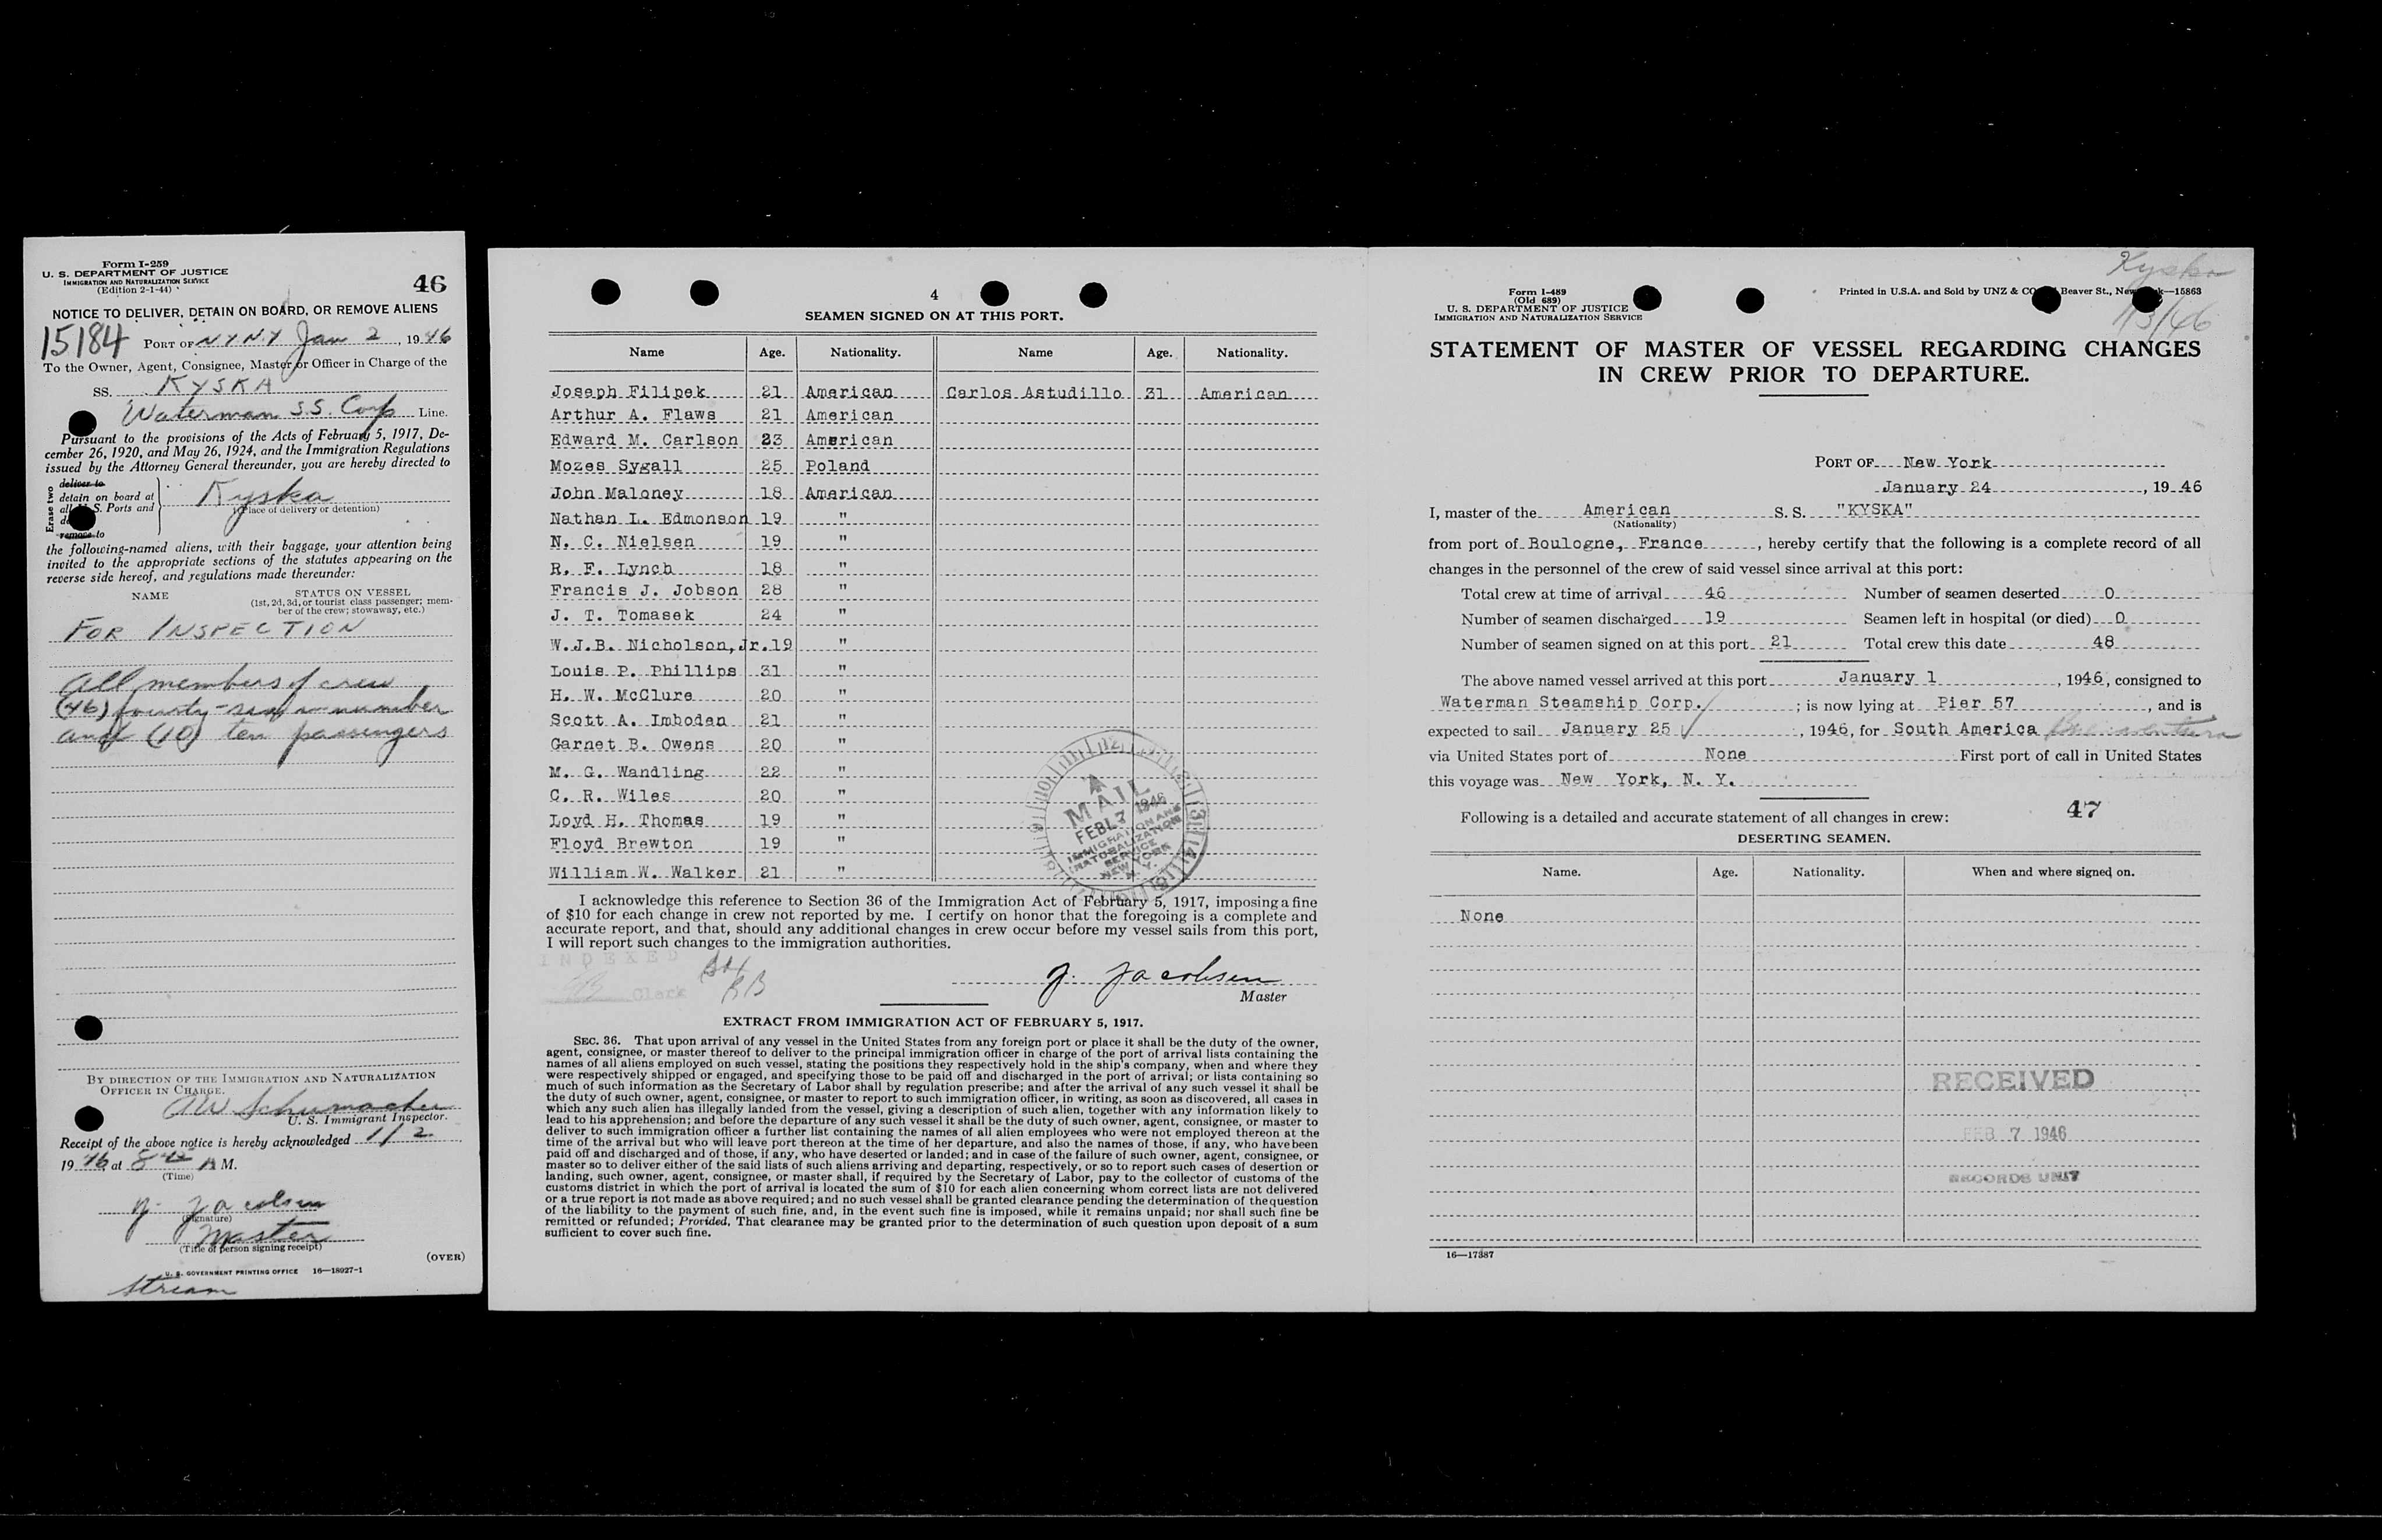 Form I-259
U. S. DEPARTMENT OF JUSTICE
IMMIGRATION AND NATURALIZATION SERVICE
(Edition 2-1-44)
46
NOTICE TO DELIVER, DETAIN ON BOARD, OR REMOVE ALIENS
15184 PORT OF N Y N Y Jan 2, 1946
To the Owner, Agent, Consignee, Master or Officer in Charge of the
SS. KYSKA
Waterman S.S. Corp Line.
Pursuant to the provisions of the Acts of February 5, 1917, De-
cember 26, 1920, and May 26, 1924, and the Immigration Regulations
issued by the Attorney General thereunder, you are hereby directed to
Erase two
deliver to
detain on board at
all S. Ports and
remove to
Kyska
(Place of delivery or detention)
the following-named aliens, with their baggage, your attention being
invited to the appropriate sections of the statutes appearing on the
reverse side hereof, and regulations made thereunder:
NAME STATUS ON VESSEL
(1st, 2d, 3d, or tourist class passenger; mem-
ber of the crew; stowaway, etc.)
FOR INSPECTION
All members of crew
(46) fourty-six in number
and (10) ten passengers
BY DIRECTION OF THE IMMIGRATION AND NATURALIZATION
OFFICER IN CHARGE.
Schumacher
U. S. Immigrant Inspector.
Receipt of the above notice is hereby acknowledged 1/2
1946 at 8 A M.
(Time)
J. Jacobsen
(Signature)
Master
(Title of person signing receipt)
(OVER)
U. S. GOVERNMENT PRINTING OFFICE 16—18927-1
Stream
4
SEAMEN SIGNED ON AT THIS PORT.
Name Age. Nationality. Name Age. Nationality.
Joseph Filipek 21 American Carlos Astudillo 31 American
Arthur A. Flaws 21 American
Edward M. Carlson 23 American
Mozes Sygall 25 Poland
John Maloney 18 American
Nathan L. Edmonson 19 "
N. C. Nielsen 19 "
R. F. Lynch 18 "
Francis J. Jobson 28 "
J. T. Tomasek 24 "
W.J.B. Nicholson,Jr. 19 "
Louis P. Phillips 31 "
H. W. McClure 20 "
Scott A. Imbodan 21 "
Garnet B. Owens 20 "
M. G. Wandling 22 "
C. R. Wiles 20 "
Loyd H. Thomas 19 "
Floyd Brewton 19 "
William W. Walker 21 "
MAIL
1946
IMMIGRATION AND
NATURALIZATION
SERVICE
NEW YORK
N. Y.
I acknowledge this reference to Section 36 of the Immigration Act of February 5, 1917, imposing a fine
of $10 for each change in crew not reported by me. I certify on honor that the foregoing is a complete and
accurate report, and that, should any additional changes in crew occur before my vessel sails from this port,
I will report such changes to the immigration authorities.
INDEXED
Clerk
J. Jacobsen
Master
EXTRACT FROM IMMIGRATION ACT OF FEBRUARY 5, 1917.
SEC. 36. That upon arrival of any vessel in the United States from any foreign port or place it shall be the duty of the owner,
agent, consignee, or master thereof to deliver to the principal immigration officer in charge of the port of arrival lists containing the
names of all aliens employed on such vessel, stating the positions they respectively hold in the ship's company, when and where they
were respectively shipped or engaged, and specifying those to be paid off and discharged in the port of arrival; or lists containing so
much of such information as the Secretary of Labor shall by regulation prescribe; and after the arrival of any such vessel it shall be
the duty of such owner, agent, consignee, or master to report to such immigration officer, in writing, as soon as discovered, all cases in
which any such alien has illegally landed from the vessel, giving a description of such alien, together with any information likely to
lead to his apprehension; and before the departure of any such vessel it shall be the duty of such owner, agent, consignee, or master to
deliver to such immigration officer a further list containing the names of all alien employees who were not employed thereon at the
time of the arrival but who will leave port thereon at the time of her departure, and also the names of those, if any, who have been
paid off and discharged and of those, if any, who have deserted or landed; and in case of the failure of such owner, agent, consignee, or
master so to deliver either of the said lists of such aliens arriving and departing, respectively, or so to report such cases of desertion or
landing, such owner, agent, consignee, or master shall, if required by the Secretary of Labor, pay to the collector of customs of the
customs district in which the port of arrival is located the sum of $10 for each alien concerning whom correct lists are not delivered
or a true report is not made as above required; and no such vessel shall be granted clearance pending the determination of the question
of the liability to the payment of such fine, and, in the event such fine is imposed, while it remains unpaid; nor shall such fine be
remitted or refunded; Provided, That clearance may be granted prior to the determination of such question upon deposit of a sum
sufficient to cover such fine.
Kyska
Form I-489
(Old 689)
U. S. DEPARTMENT OF JUSTICE
IMMIGRATION AND NATURALIZATION SERVICE
Printed in U.S.A. and Sold by UNZ & CO Beaver St., New —15863
STATEMENT OF MASTER OF VESSEL REGARDING CHANGES
IN CREW PRIOR TO DEPARTURE.
PORT OF New York
January 24, 1946
I, master of the American S. S. "KYSKA"
(Nationality)
from port of Boulogne, France, hereby certify that the following is a complete record of all
changes in the personnel of the crew of said vessel since arrival at this port:
Total crew at time of arrival 46 Number of seamen deserted 0
Number of seamen discharged 19 Seamen left in hospital (or died) 0
Number of seamen signed on at this port 21 Total crew this date 48
The above named vessel arrived at this port January 1, 1946, consigned to
Waterman Steamship Corp. ; is now lying at Pier 57, and is
expected to sail January 25, 1946, for South America
via United States port of None First port of call in United States
this voyage was New York, N. Y.
47
Following is a detailed and accurate statement of all changes in crew:
DESERTING SEAMEN.
Name. Age. Nationality. When and where signed on.
None
RECEIVED
FEB 7 1946
RECORDS UNIT
16—17387